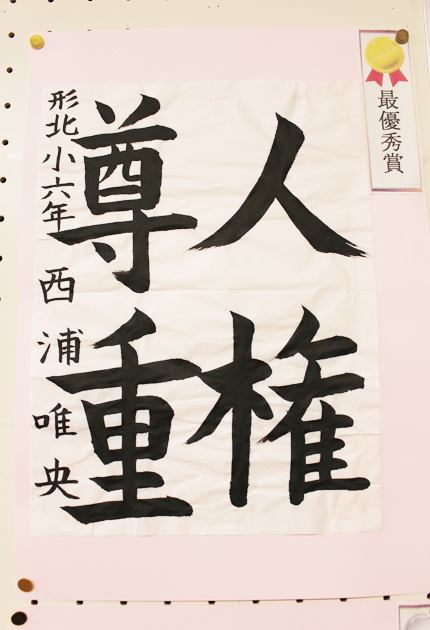 最優秀賞
人権
尊重
形北小六年 西浦唯央